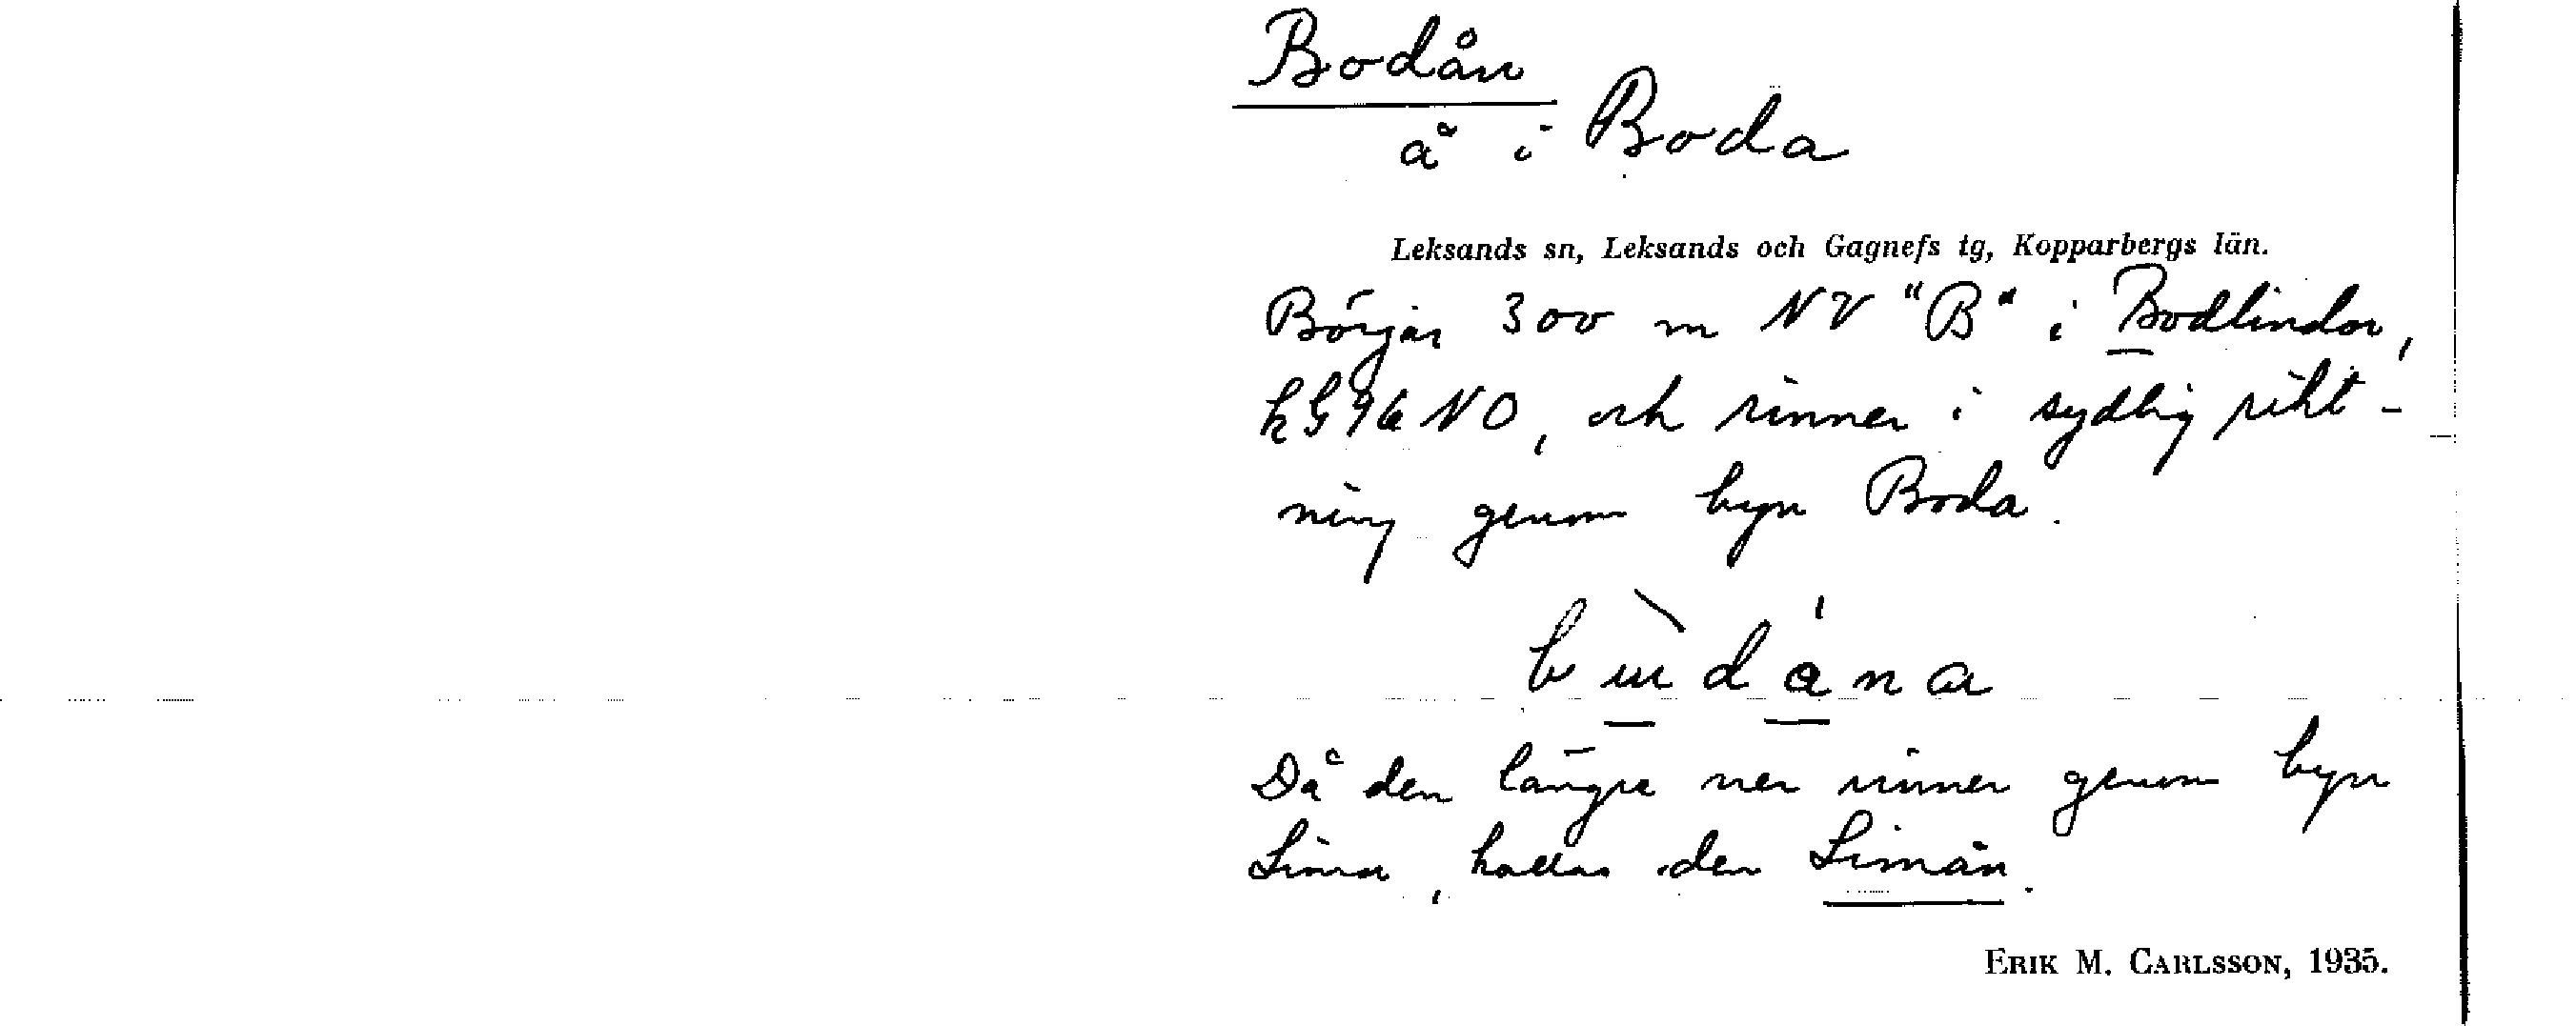 Bodån
å i Boda
Leksands sn, Leksands och Gagnefs tg, Kopparbergs län.
Börjar 300 m NV "B" i Bodlindor,
kG 96 NO, och rinner i sydlig rikt-
ning genom byn Boda.
Då den längre ner rinner genom byn
Lima, kallas den Limån.
ERIK M. CARLSSON, 1935.